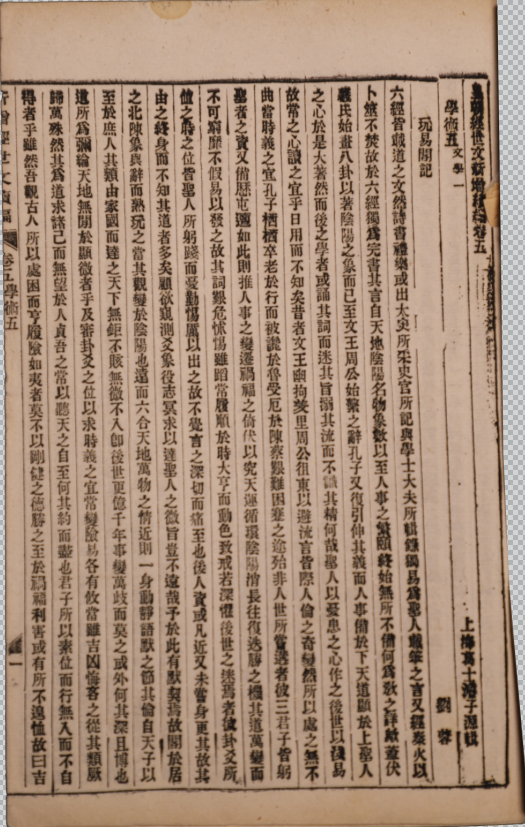 皇朝經世文新增續編卷五
上海葛士濬子源輯
學術五 文學一
劉蓉
玩易閣記
六經皆載道之文然詩書禮樂或出太史所采史官所記與學士大夫所輯錄獨易為聖人載筆之言又經秦火以
卜筮不焚故於六經獨為完書其言自天地陰陽名物象數以至人事之繁賾終始無所不備何為教之詳歟蓋伏
羲氏始畫八卦以著陰陽之象而已至文王周公始繫之辭孔子又復引伸其義而人事備於下天道顯於上聖人
之心於是大著然而後之學者或誦其詞而迷其旨溺其流而不識其精何哉聖人以憂患之心作之後世以淺易
故常之心讀之宜乎日用而不知矣昔者文王幽拘羑里周公徂東以避流言皆際人倫之奇變然所以處之無不
曲當時義之宜孔子栖栖卒老於行而被讒於魯受厄於陳蔡艱難困塞之途殆非人世所嘗遘者彼三君子皆躬
聖者之資又備歷屯邅如此則推人事之變遷禍福之倚伏以究天運循環陰陽消長往復迭勝之機其道萬變而
不可窮靡不假易以發之故其詞艱危怵惕雖蹈常履順於時大亨而動色致戒若深懼後世之迷焉者彼卦爻所
值之時之位皆聖人所躬踐而憂勤惕厲以出之故不覺言之深切而痛至也後人資或凡近又未嘗身更其故其
由之終身而不知其道者多矣顧欲窺測爻象役志冥求以達聖人之微旨豈不遠哉予於此有默契焉故閣於居
之北陳象與辭而熟玩之當其觀變於陰陽也遠而六合天地萬物之情近則一身動靜語默之節其倫自天子以
至於庶人其類由家國而達之天下無鉅不賅無微不入卽後世更億千年事變萬歧而莫之或外何其深且博也
道所為彌綸天地無閒於顯微者乎及審卦爻之位以求時義之宜常變險易各有攸當雖吉凶悔吝之從其類厥
歸萬殊然其為道求諸己而無望於人貞吾之常以聽天之自至何其約而盡也君子所以素位而行無入而不自
得者乎雖然吾觀古人所以處困而亨履險如夷者莫不以剛健之德勝之至於禍福利害或有所不遑恤故曰吉
卷五學術五
一